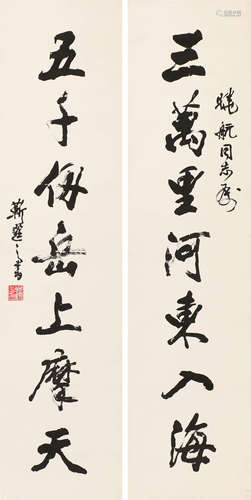 三萬里河東入海
曉航同志屬
五千仞岳上摩天